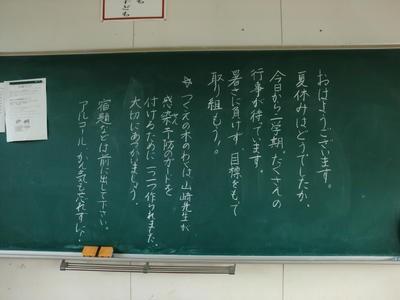 おはようございます。
夏休みはどうでしたか。
今日から二学期、たくさんの
行事が待ってます。
暑さに負けず、目標をもって
取り組もう!。
☆つくえの木のわくは、山崎先生が
感染予防のガードを
付けるために一つ一つ作られました。
大切にあつかいましょう。
宿題などは前に出して下さい。
アルコール、かん気も忘れずに!